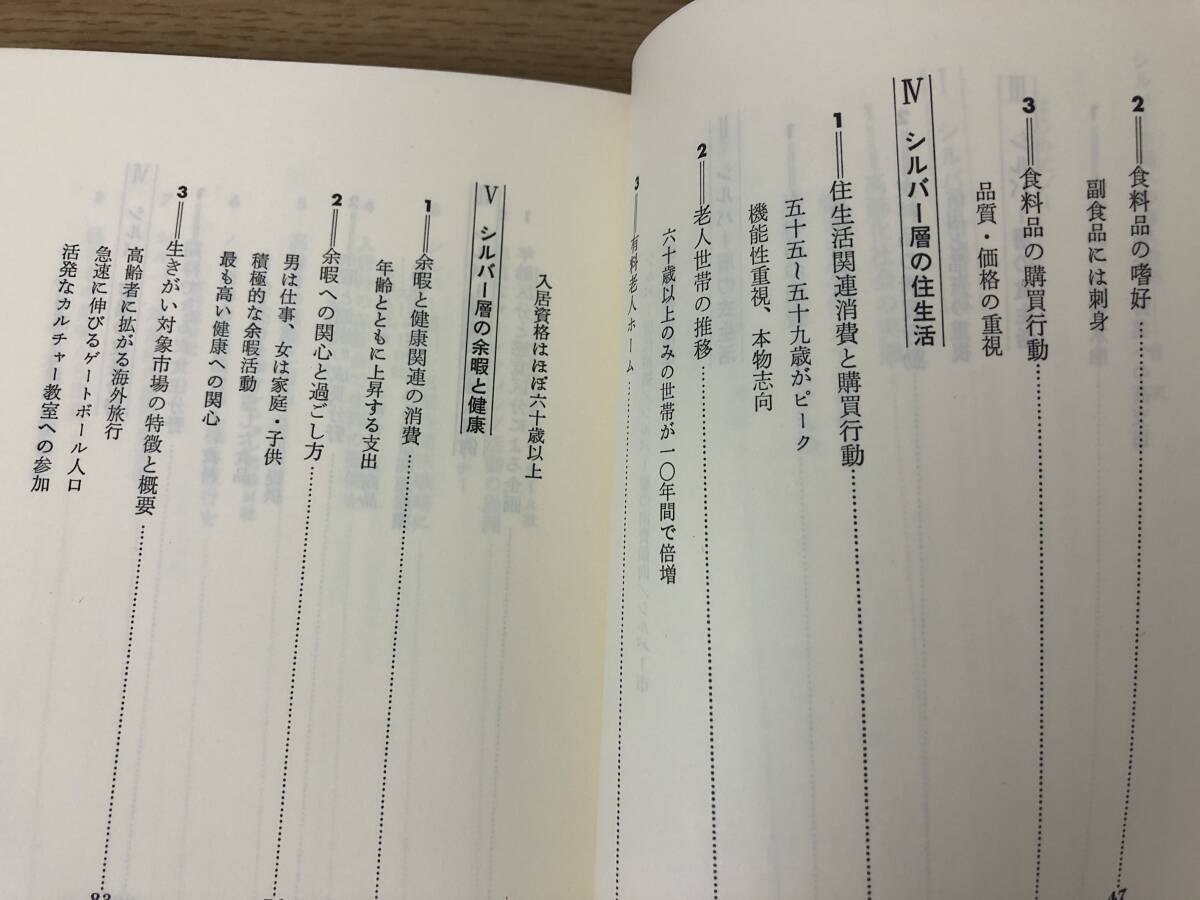 2 食料品の嗜好
副食品には刺身
3 食料品の購買行動
品質・価格の重視
Ⅳ シルバー層の住生活
1 住生活関連消費と購買行動
五十五〜五十九歳がピーク
機能性重視、本物志向
2 老人世帯の推移
六十歳以上のみの世帯が一〇年間で倍増
3 有料老人ホーム
47
入居資格はほぼ六十歳以上
Ⅴ シルバー層の余暇と健康
1 余暇と健康関連の消費
年齢とともに上昇する支出
2 余暇への関心と過ごし方
男は仕事、女は家庭・子供
積極的な余暇活動
最も高い健康への関心
3 生きがい対象市場の特徴と概要
高齢者に拡がる海外旅行
急速に伸びるゲートボール人口
活発なカルチャー教室への参加
83